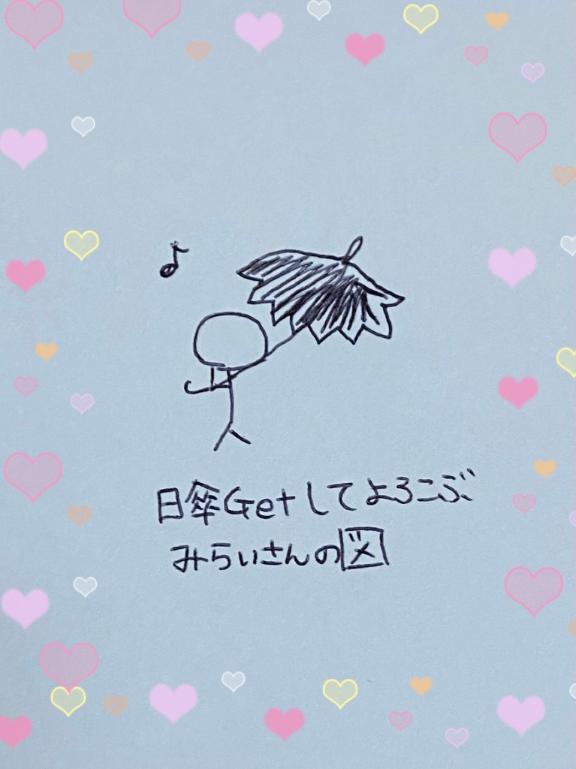 日傘Getしてよろこぶ
みらいさんの図